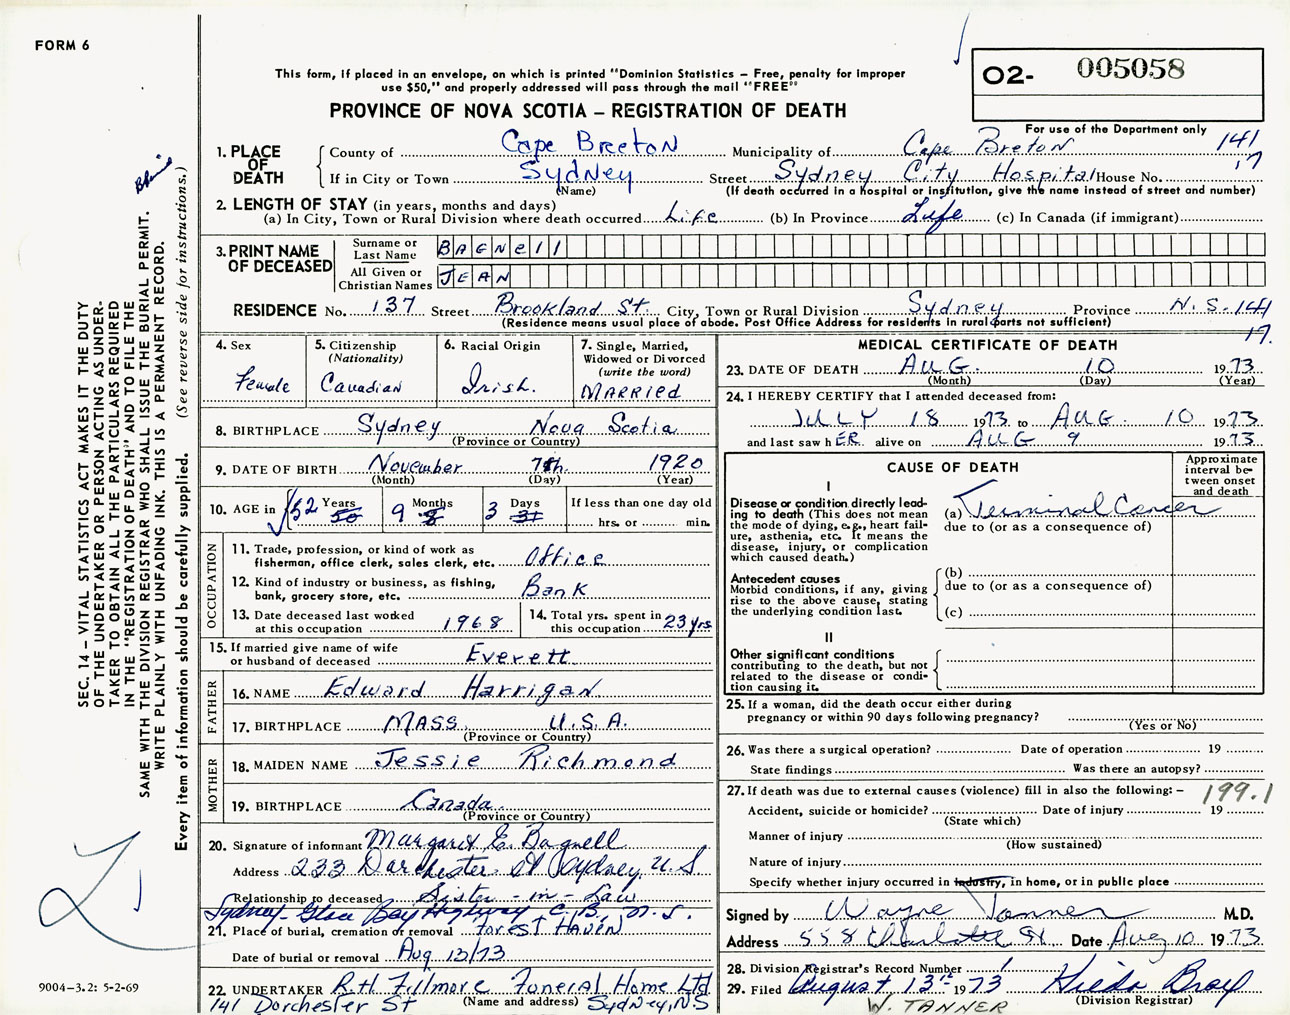 FORM 6
This form, if placed in an envelope, on which is printed "Dominion Statistics – Free, penalty for improper
use $50," and properly addressed will pass through the mail "FREE"
PROVINCE OF NOVA SCOTIA – REGISTRATION OF DEATH
O2- 005058
For use of the Department only
141
17
1. PLACE OF DEATH
County of Cape Breton Municipality of Cape Breton
If in City or Town Sydney Street Sydney City Hospital House No.
(Name) (If death occurred in a hospital or institution, give the name instead of street and number)
2. LENGTH OF STAY (in years, months and days)
(a) In City, Town or Rural Division where death occurred Life (b) In Province Life (c) In Canada (if immigrant)
3. PRINT NAME OF DECEASED
Surname or Last Name BAGNEll
All Given or Christian Names JEAN
RESIDENCE No. 137 Street Brookland St. City, Town or Rural Division Sydney Province N.S. 141
17.
(Residence means usual place of abode. Post Office Address for residents in rural parts not sufficient)
4. Sex
Female
5. Citizenship
(Nationality)
Canadian
6. Racial Origin
Irish.
7. Single, Married,
Widowed or Divorced
(write the word)
MARRIED
8. BIRTHPLACE Sydney Nova Scotia
(Province or Country)
9. DATE OF BIRTH November 7th 1920
(Month) (Day) (Year)
10. AGE in 52 Years 50 9 Months 8 3 Days 31 If less than one day old
hrs. or min.
OCCUPATION
11. Trade, profession, or kind of work as
fisherman, office clerk, sales clerk, etc. Office
12. Kind of industry or business, as fishing,
bank, grocery store, etc. Bank
13. Date deceased last worked
at this occupation 1968
14. Total yrs. spent in
this occupation 23 yrs.
15. If married give name of wife
or husband of deceased Everett
FATHER
16. NAME Edward Harrigan
17. BIRTHPLACE MASS. U.S.A.
(Province or Country)
MOTHER
18. MAIDEN NAME Jessie Richmond
19. BIRTHPLACE Canada.
(Province or Country)
20. Signature of informant Margaret E. Bagnell
Address 233 Dorchester St Sydney, N S
Relationship to deceased Sister-in-Law
Sydney-Glace Bay Highway C.B., N.S.
21. Place of burial, cremation or removal Forest Haven
Date of burial or removal Aug 13/73
22. UNDERTAKER R.H. Fillmore Funeral Home Ltd
(Name and address)
141 Dorchester St Sydney, N.S
MEDICAL CERTIFICATE OF DEATH
23. DATE OF DEATH AUG. 10 1973
(Month) (Day) (Year)
24. I HEREBY CERTIFY that I attended deceased from:
JULY 18 1973 to AUG. 10 1973
and last saw hER alive on AUG 9 1973
CAUSE OF DEATH
Approximate interval between onset and death
I
Disease or condition directly leading to death (This does not mean
the mode of dying, e.g., heart failure, asthenia, etc. It means the
disease, injury, or complication
which caused death.)
(a) Terminal Cancer
due to (or as a consequence of)
Antecedent causes
Morbid conditions, if any, giving
rise to the above cause, stating
the underlying condition last.
(b)
due to (or as a consequence of)
(c)
II
Other significant conditions
contributing to the death, but not
related to the disease or condition causing it.
25. If a woman, did the death occur either during
pregnancy or within 90 days following pregnancy?
(Yes or No)
26. Was there a surgical operation? Date of operation 19
State findings Was there an autopsy?
27. If death was due to external causes (violence) fill in also the following: – 199.1
Accident, suicide or homicide? Date of injury 19
(State which)
Manner of injury
(How sustained)
Nature of injury
Specify whether injury occurred in industry, in home, or in public place
Signed by Wayne Tanner M.D.
Address 558 Charlotte St. Date Aug 10 1973
28. Division Registrar's Record Number 1
29. Filed August 13th 1973 Hilda Bray
(Division Registrar)
W. TANNER
SEC. 14 – VITAL STATISTICS ACT MAKES IT THE DUTY
OF THE UNDERTAKER OR PERSON ACTING AS UNDER-
TAKER TO OBTAIN ALL THE PARTICULARS REQUIRED
IN THE "REGISTRATION OF DEATH" AND TO FILE THE
SAME WITH THE DIVISION REGISTRAR WHO SHALL ISSUE THE BURIAL PERMIT.
WRITE PLAINLY WITH UNFADING INK. THIS IS A PERMANENT RECORD.
Every item of information should be carefully supplied. (See reverse side for instructions.)
9004-3.2: 5-2-69